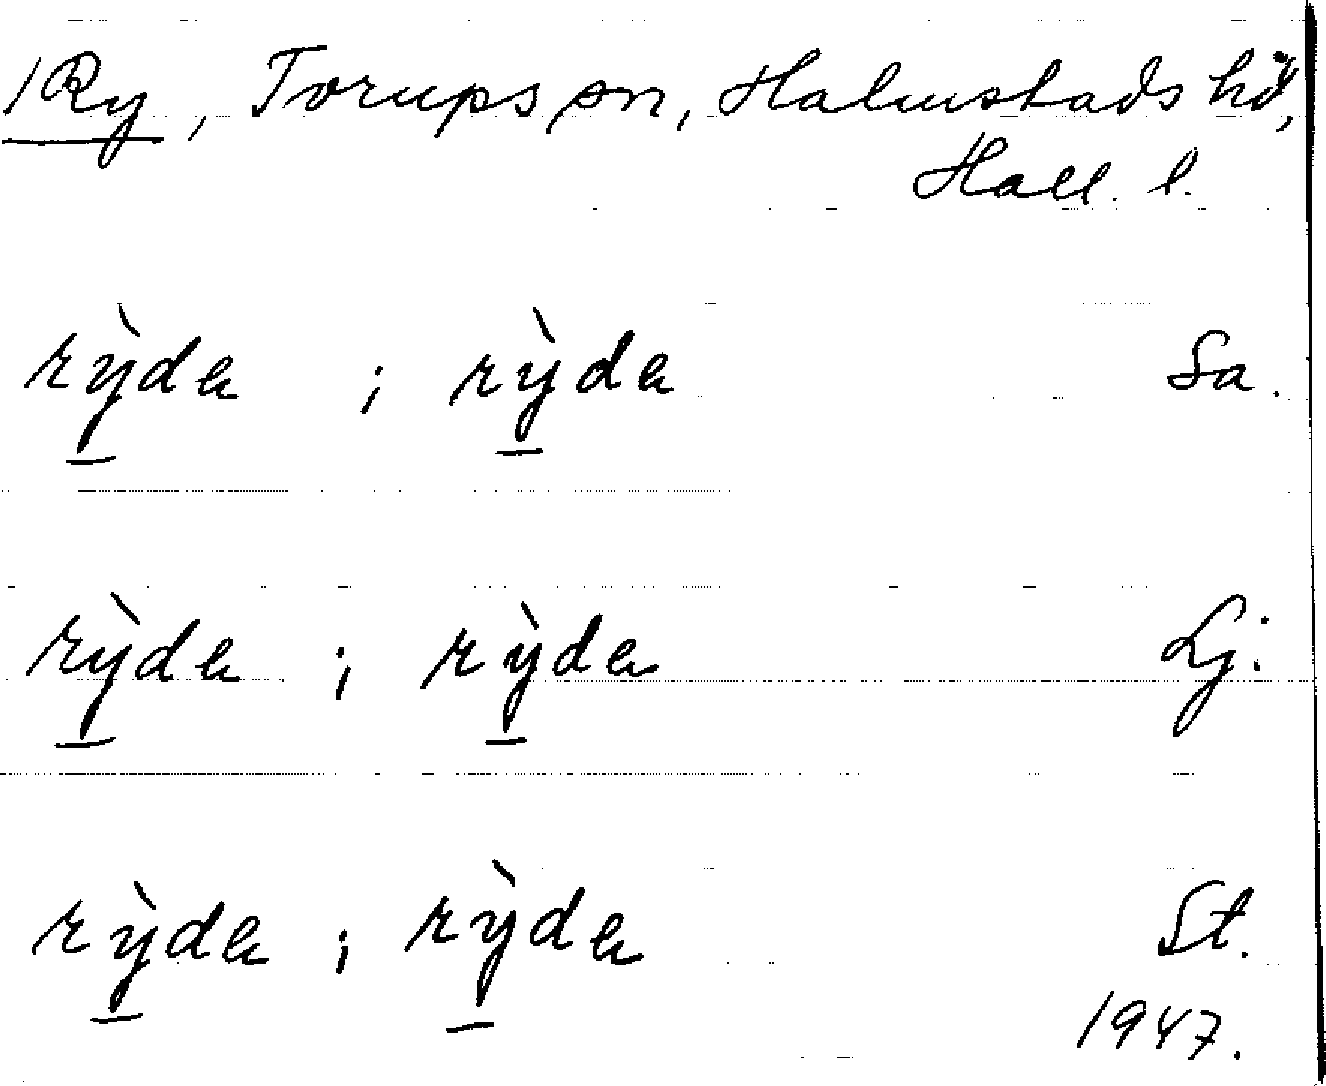 /Ry, Torups sn, Halmstads hd,
Hall. l.
rỳ̠da ; rỳ̠da Sa.
rỳ̠da ; rỳ̠da Lj.
rỳ̠da ; rỳ̠da St.
1947.